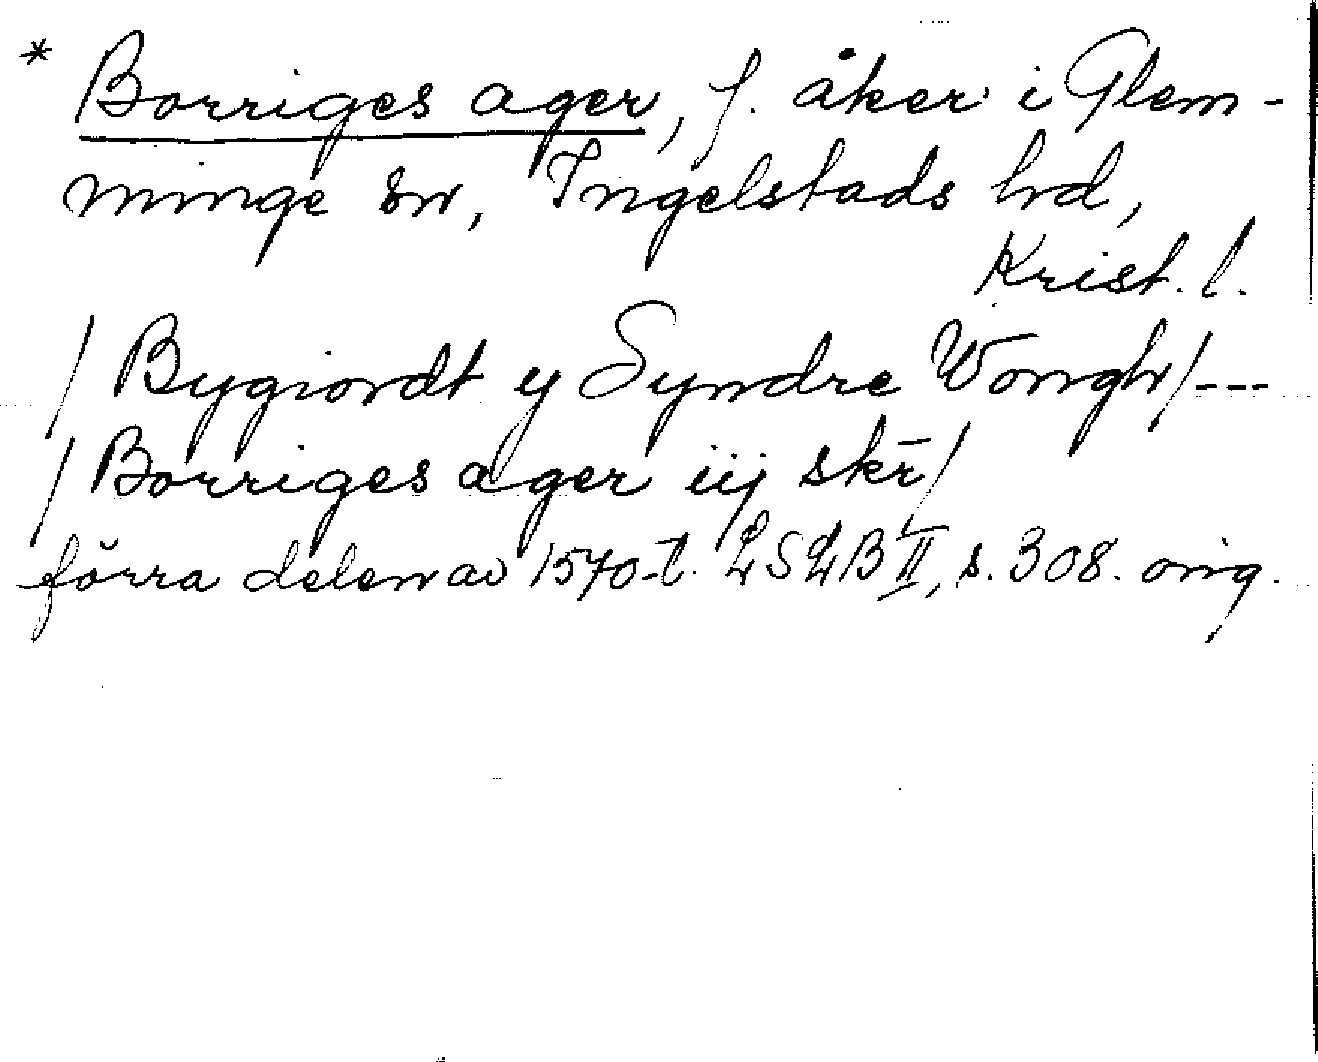 * Borriges ager, f. åker i Glem-
minge sn, Ingelstads hd,
Krist. l.
/ Bygiordt y Syndre Wongh / ---
/ Borriges ager iij skr̄ /
förra delen av 1570-t. LSLB II, s. 308. orig.